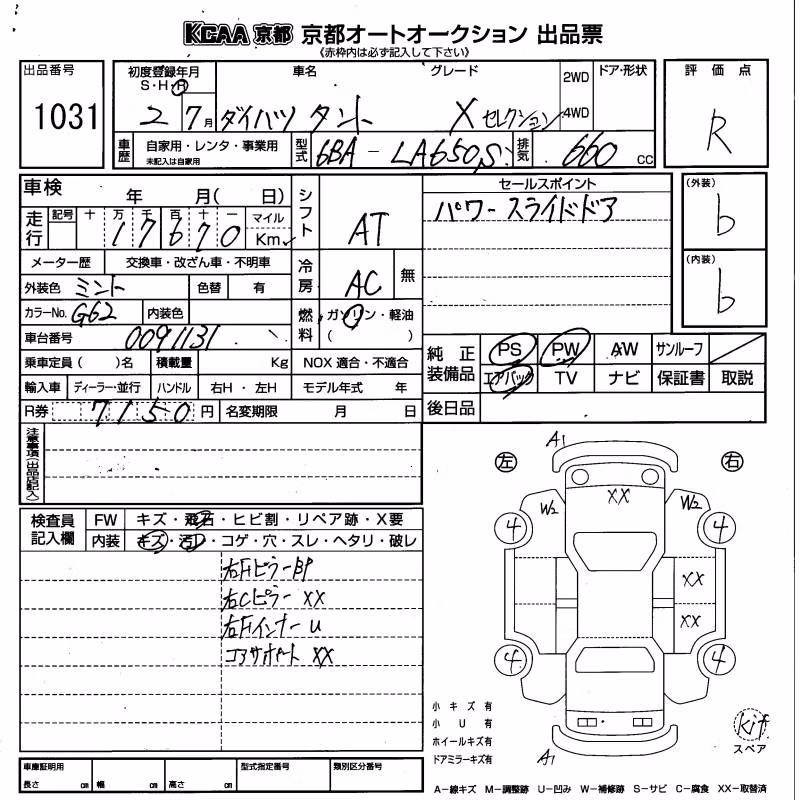 KCAA 京都 京都オートオークション 出品票
《赤枠内は必ず記入して下さい》
出品番号 1031
初度登録年月 S・H・R 2 7月
車名 グレード ダイハツ タント X セレクション
2WD 4WD
ドア・形状
評価点 R
車歴 自家用・レンタ・事業用 未記入は自家用
型式 6BA-LA650S
排気 660 cc
車検 年 月( 日)
シフト AT
セールスポイント
パワースライドドア
(外装) b
(内装) b
走行 記号 十 万 千 百 十 一 マイル Km
1 7 6 7 0
メーター歴 交換車・改ざん車・不明車
冷房 AC 無
外装色 ミント 色替 有
カラーNo. G62 内装色
燃料 ガソリン・軽油 ( )
車台番号 0091131
乗車定員( )名 積載量 Kg NOX 適合・不適合
純正装備品 PS PW AW サンルーフ
エアバック TV ナビ 保証書 取説
輸入車 ディーラー・並行 ハンドル 右H・左H モデル年式 年
R券 7150 円 名変期限 月 日
後日品
注意事項(出品店記入)
検査員記入欄 FW キズ・飛石・ヒビ割・リペア跡・X要
内装 キズ・汚れ・コゲ・穴・スレ・ヘタリ・破レ
右Fピラー BP
右Cピラー XX
右Fインナー U
コアサポート XX
左 右
A1
XX
W2 W2
4 4
XX
XX
4 4
A1
小キズ有
小U有
ホイールキズ有
ドアミラーキズ有
kit
スペア
車庫証明用 長さ cm 幅 cm 高さ cm 型式指定番号 類別区分番号
A−線キズ M−調整跡 U−凹み W−補修跡 S−サビ C−腐食 XX−取替済